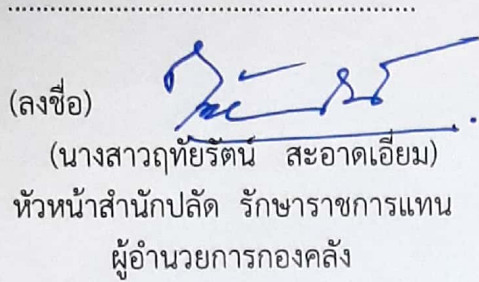 (ลงชื่อ)
(นางสาวฤทัยรัตน์ สะอาดเอี่ยม)
หัวหน้าสำนักปลัด รักษาราชการแทน
ผู้อำนวยการกองคลัง